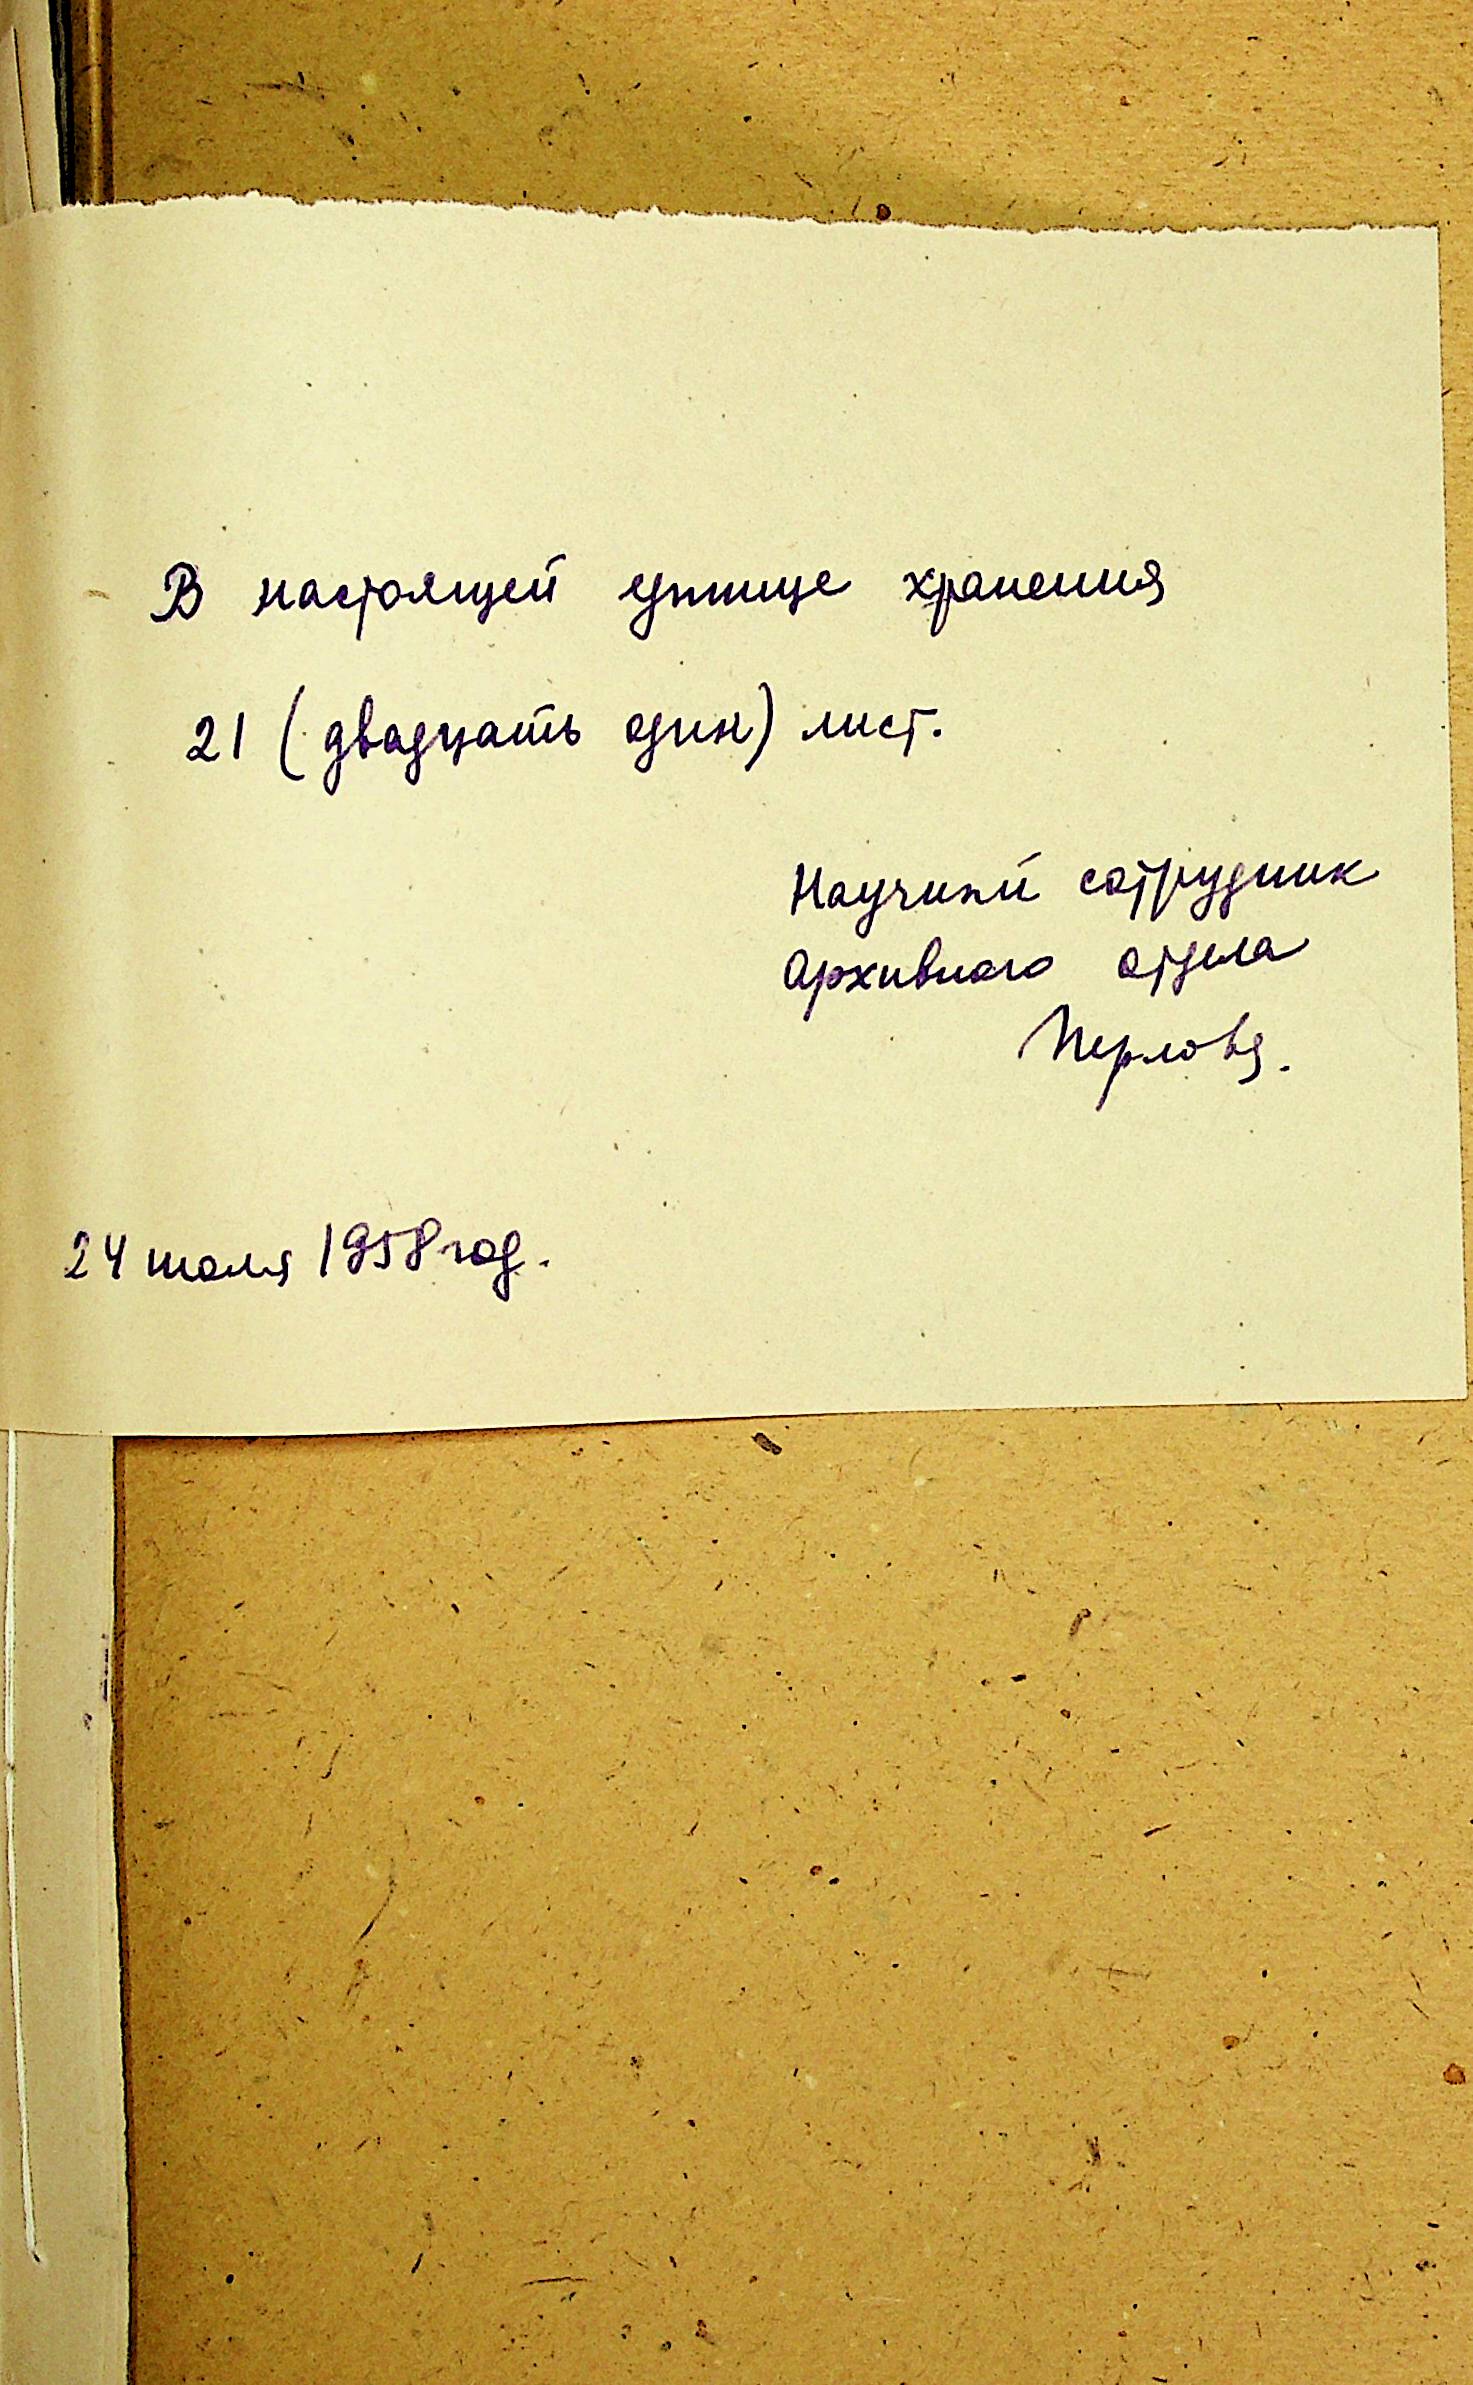 В настоящей единице хранения
21 (двадцать один) лист.
Научный сотрудник
архивного отдела
Перлова.
24 июля 1958 год.